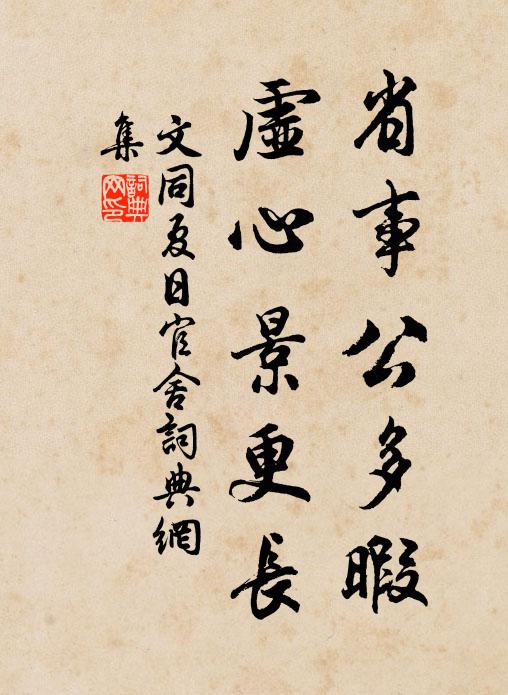 省事公多暇
虛心景更長
文同夏日官舍詞典網
集
詞典網印